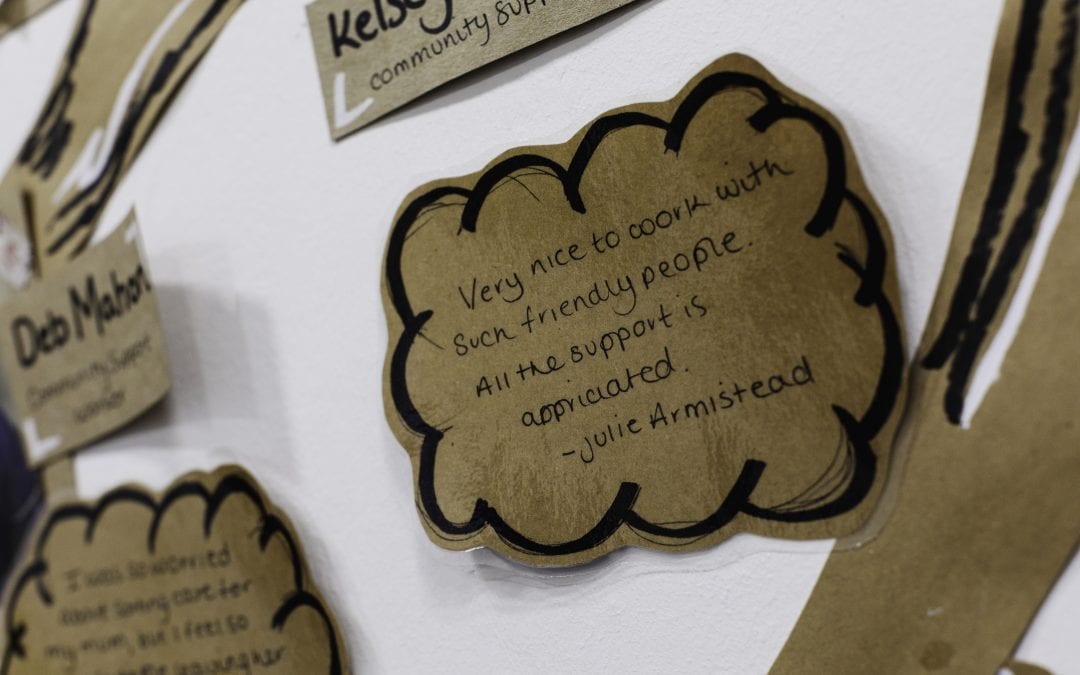 Kelsey
community supp
Very nice to coork with
Such friendly people.
All the support is
appriciated.
-Julie Armistead
Deb Mahon
Community Support
worker
I was so worried
about care for
my mum, but I feel so
her